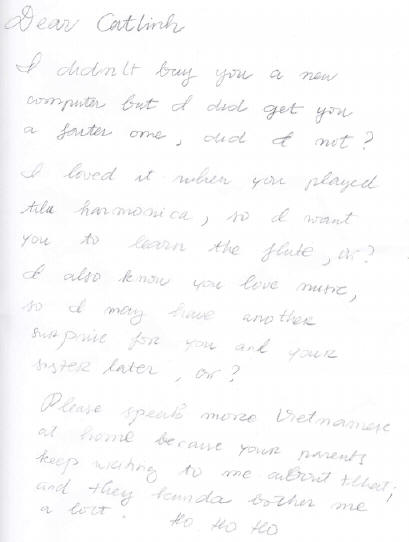 Dear Catlinh
I didn't buy you a new
computer but I did get you
a faster one, did I not?
I loved it when you played
the harmonica, so I want
you to learn the flute, or?
I also know you love music,
so I may have another
surprise for you and your
sister later, or?
Please speak more Vietnamese
at home because your parents
keep writing to me about that;
and they kinda bother me
a lot. Ho Ho Ho